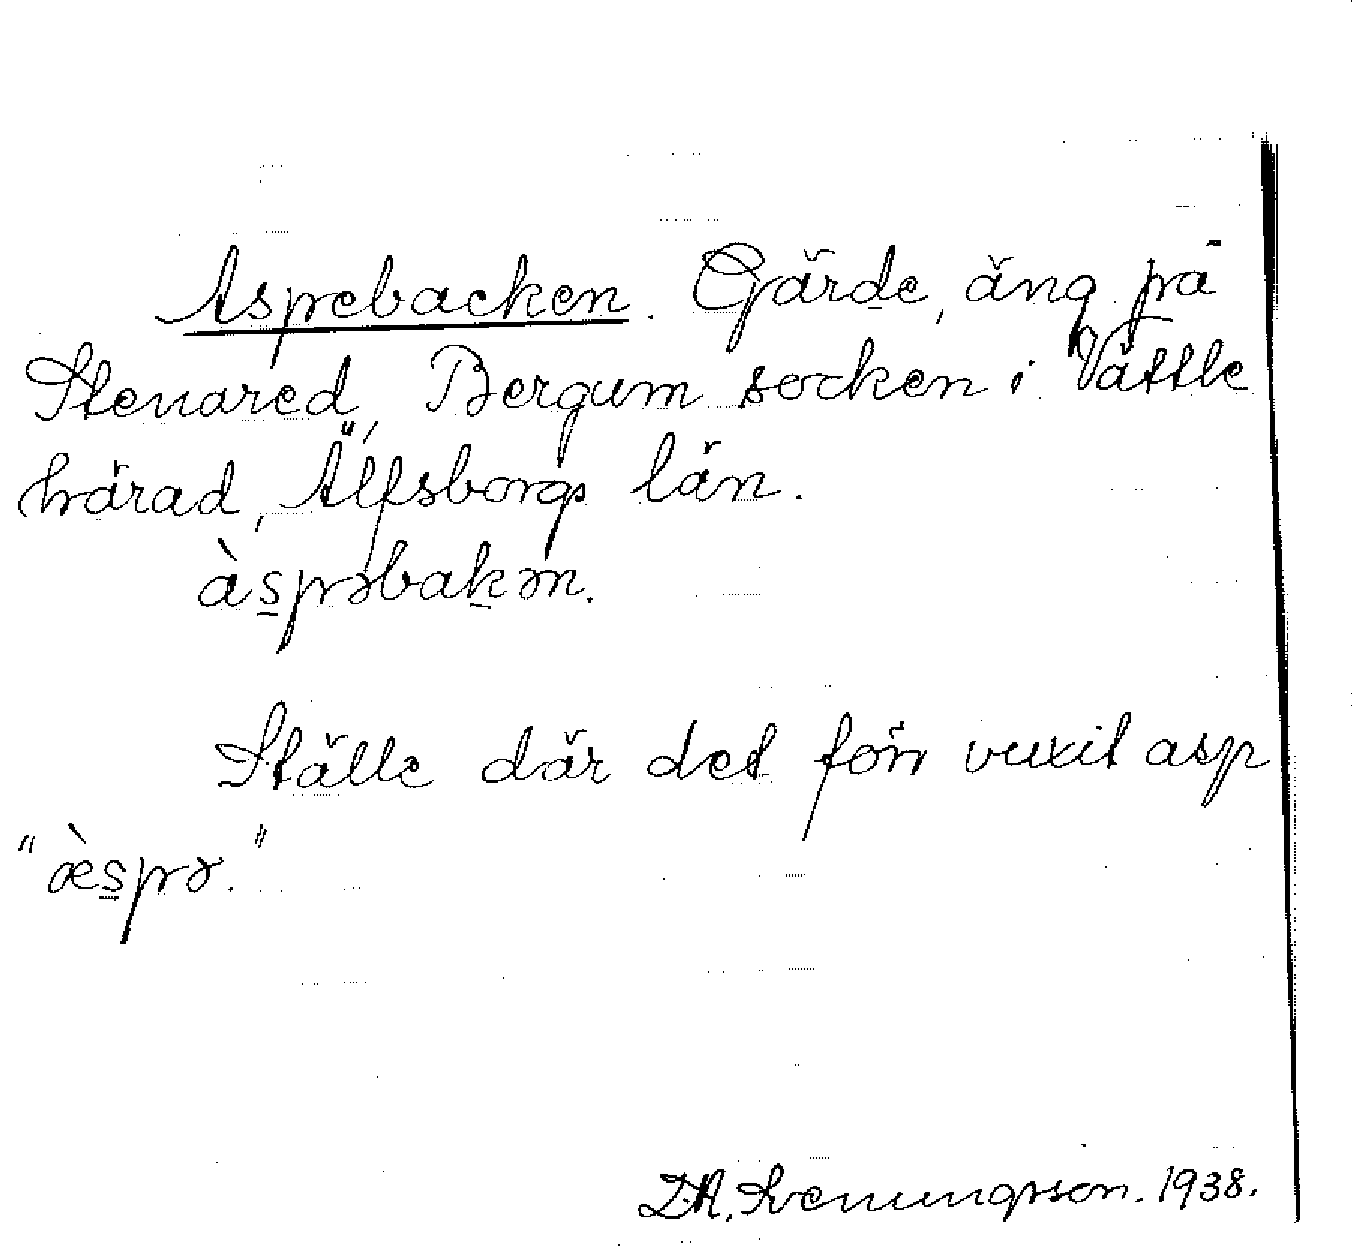 Asprebacken. Gärde, äng på
Stenared, Bergum socken i Vättle
härad, Älfsborgs län.
àsprəbakən.
Ställe där det förr vuxit asp
"æ̀sprə."
D.A. Svenungsson. 1938.